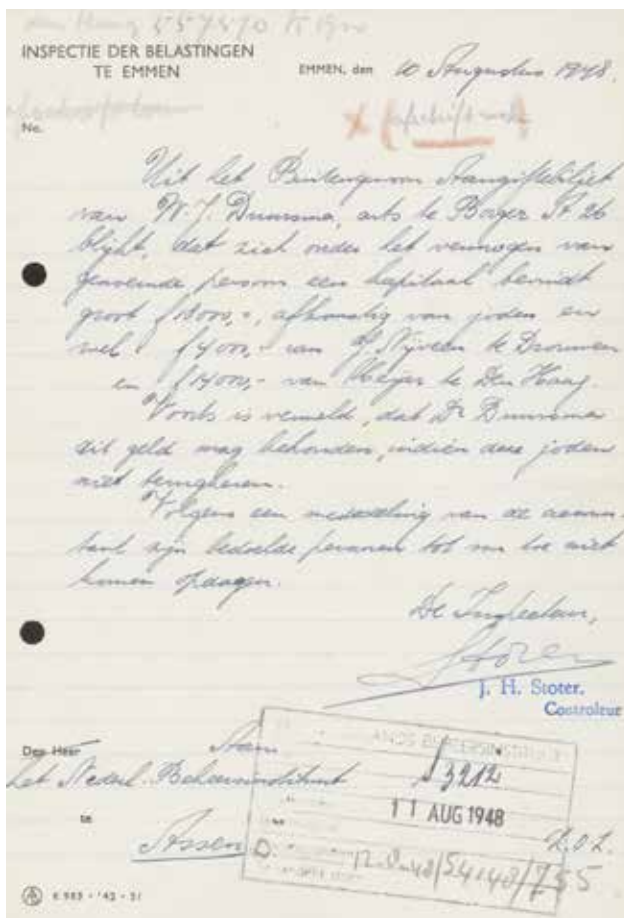 557570
INSPECTIE DER BELASTINGEN
TE EMMEN
EMMEN, den 10 Augustus 1948.
No.
Uit het Buitengewoon Aangiftebiljet
van W. J. Buursma, arts te Borger St 26
blijkt, dat zich onder het vermogen van
genoemde persoon een kapitaal bevindt
groot f 18000,-, afkomstig van joden en
wel f 4000,- van Nijveen te Drouwen
en f 14000,- van Meijer te Den Haag.
Voorts is vermeld, dat Dr Buursma
dit geld mag behouden, indien deze joden
niet terugkeren.
Volgens een mededeeling van de accoun-
tant zijn bedoelde personen tot nu toe niet
komen opdagen.
De Inspecteur,
Stoter
J. H. Stoter.
Controleur
Den Heer
Aan
het Nederl. Beheersinstituut
te
Assen
ANDS BEHEERSINSTITUUT
3212
11 AUG 1948
D.
54148/755
K 985 - '43 - 51